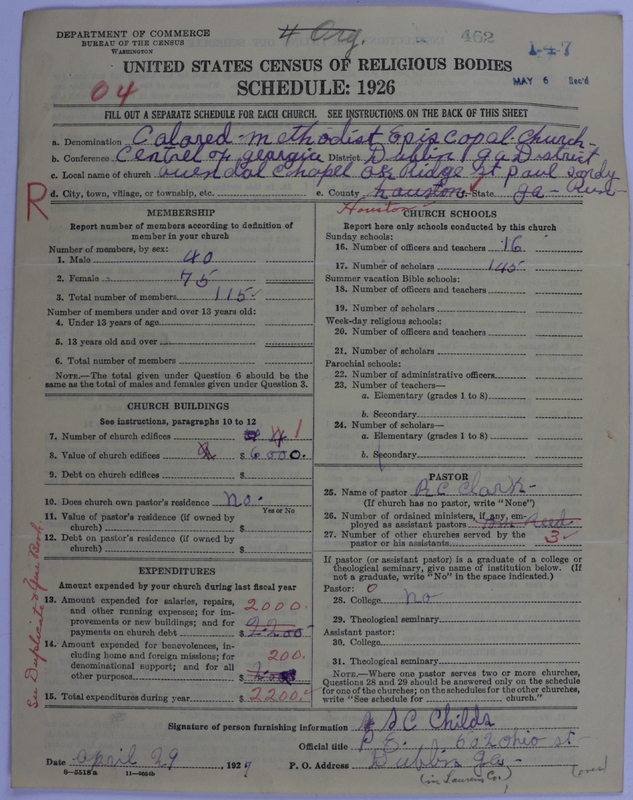 DEPARTMENT OF COMMERCE
BUREAU OF THE CENSUS
WASHINGTON
4 Org.
462
1-4-7
MAY 6 Rec'd
UNITED STATES CENSUS OF RELIGIOUS BODIES
SCHEDULE: 1926
04
FILL OUT A SEPARATE SCHEDULE FOR EACH CHURCH. SEE INSTRUCTIONS ON THE BACK OF THIS SHEET
a. Denomination Colored methodist Episcopal Church
b. Conference Centrel of georgia District Dubbin ga District
c. Local name of church Chapel Ridge St Paul
R
d. City, town, village, or township, etc. e. County houston State ga
Houston
MEMBERSHIP
Report number of members according to definition of member in your church
Number of members, by sex:
1. Male 40
2. Female 75
3. Total number of members 115
Number of members under and over 13 years old:
4. Under 13 years of age
5. 13 years old and over
6. Total number of members
NOTE.—The total given under Question 6 should be the same as the total of males and females given under Question 3.
CHURCH BUILDINGS
See instructions, paragraphs 10 to 12
7. Number of church edifices 1
8. Value of church edifices $ 6000.
9. Debt on church edifices $
10. Does church own pastor's residence no.
Yes or No
11. Value of pastor's residence (if owned by church) $
12. Debt on pastor's residence (if owned by church) $
EXPENDITURES
Amount expended by your church during last fiscal year
13. Amount expended for salaries, repairs, and other running expenses; for improvements or new buildings; and for payments on church debt $ 2000. 2200
14. Amount expended for benevolences, including home and foreign missions; for denominational support; and for all other purposes $ 200.
15. Total expenditures during year $ 2200.
See Duplicate & Gar Book.
CHURCH SCHOOLS
Report here only schools conducted by this church
Sunday schools:
16. Number of officers and teachers 16
17. Number of scholars 145
Summer vacation Bible schools:
18. Number of officers and teachers
19. Number of scholars
Week-day religious schools:
20. Number of officers and teachers
21. Number of scholars
Parochial schools:
22. Number of administrative officers
23. Number of teachers—
a. Elementary (grades 1 to 8)
b. Secondary
24. Number of scholars—
a. Elementary (grades 1 to 8)
b. Secondary
PASTOR
25. Name of pastor R C Clark
(If church has no pastor, write "None")
26. Number of ordained ministers, if any, employed as assistant pastors
27. Number of other churches served by the pastor or his assistants 3
If pastor (or assistant pastor) is a graduate of a college or theological seminary, give name of institution below. (If not a graduate, write "No" in the space indicated.)
Pastor: 0
28. College no
29. Theological seminary
Assistant pastor:
30. College
31. Theological seminary
NOTE.—Where one pastor serves two or more churches, Questions 28 and 29 should be answered only on the schedule for one of the churches; on the schedules for the other churches, write "See schedule for church."
Signature of person furnishing information S C Childs
Official title P E. 652 ohio st
Date april 29 , 1927 P. O. Address Dubbin ga
(in Laurens Co.)
(over)
8—5518a 11—9054b